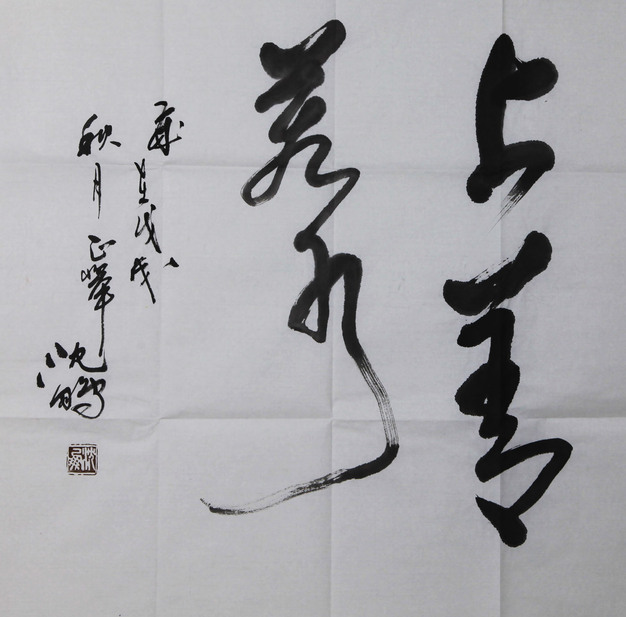 上善
若水
岁在戊戌
秋月正峰
沈鹏